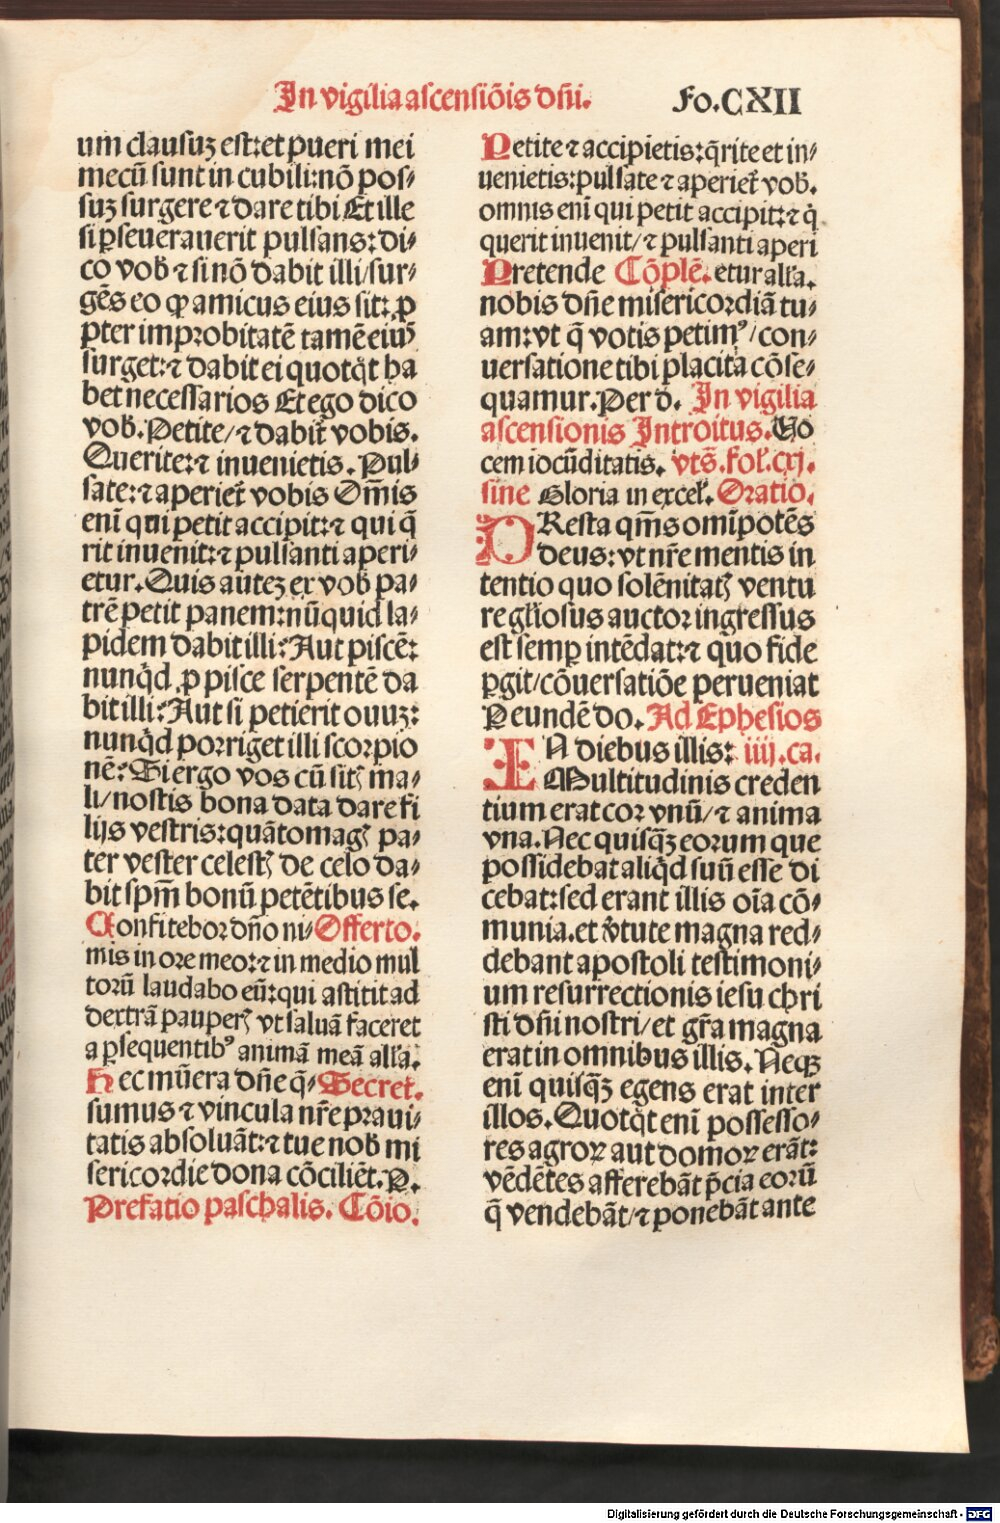 In vigilia ascensiōis dn̄i.
Fo.CXII
um clausuꝫ est:et pueri mei
mecū sunt in cubili:nō pos⸗
suꝫ surgere ⁊ dare tibi Et ille
si ꝑseuerauerit pulsans: di⸗
co vob̄ ⁊ si nō dabit illi/sur⸗
gēs eo ꝙ amicus eius sit: ꝓ
pter improbitatē tamē eiuˢ
surget:⁊ dabit ei quotq̄t ha
bet necessarios Et ego dico
vob̄. Petite/⁊ dabit̄ vobis.
Querite:⁊ inuenietis. Pul⸗
sate:⁊ aperiet̄ vobis Om̄is
enī qui petit accipit:⁊ qui q̄
rit inuenit:⁊ pulsanti aperi⸗
etur. Quis auteꝫ ex vob̄ pa⸗
trē petit panem:nūquid la⸗
pidem dabit illi? Aut piscē:
nunq̄d ꝓ pisce serpentē da
bit illi? Aut si petierit ouuꝫ:
nunq̄d porriget illi scorpio
nē? Si ergo vos cū sitꝭ ma⸗
li/nostis bona data dare fi
lijs vestris:quātomagꝭ pa⸗
ter vester celestꝭ de celo da⸗
bit sp̄m bonū petētibus se.
Confitebor dn̄o ni⸗ Offerto.
mis in ore meo:⁊ in medio mul
torū laudabo eū:qui astitit ad
dextrā pauperꝭ vt saluā faceret
a ꝑsequentibꝰ animā meā all'a.
Hec mūera dn̄e q̄⸗ Secret̄.
sumus ⁊ vincula nr̄e praui⸗
tatis absoluāt:⁊ tue nob̄ mi
sericordie dona cōciliēt. P.
Prefatio paschalis. Cōio.
Petite ⁊ accipietis:q̄rite et in⸗
uenietis:pulsate ⁊ aperiet̄ vob̄.
omnis enī qui petit accipit:⁊ q̄
querit inuenit/⁊ pulsanti aperi
Pretende Cōplē. etur all'a.
nobis dn̄e misericordiā tu⸗
am:vt q̄ votis petimꝰ/con⸗
uersatione tibi placita cōse⸗
quamur. Per d. In vigilia
ascensionis Introitus. Vo
cem iocūditatis. vts̄. fol'. cxj.
sine Gloria in excel'. Oratio.
PResta qm̄s omīpotēs
deus: vt nr̄e mentis in
tentio quo solēnitatꝭ ventu
re gl'iosus auctor ingressus
est semꝑ intēdat:⁊ quo fide
ꝑgit/cōuersatiōe perueniat
Peundē do. Ad Ephesios
IN diebus illis: iiij. ca.
Multitudinis creden
tium erat cor vnū/⁊ anima
vna. Nec quisq̄ꝫ eorum que
possidebat aliq̄d suū esse di
cebat:sed erant illis oīa cō⸗
munia. et v̄tute magna red⸗
debant apostoli testimoni⸗
um resurrectionis iesu chri
sti dn̄i nostri/et gr̄a magna
erat in omnibus illis. Neqꝫ
enī quisq̄ꝫ egens erat inter
illos. Quotq̄t enī possesso⸗
res agroꝝ aut domoꝝ erāt:
vēdētes afferebāt p̄cia eorū
q̄ vendebāt/⁊ ponebāt ante
Digitalisierung gefördert durch die Deutsche Forschungsgemeinschaft - DFG